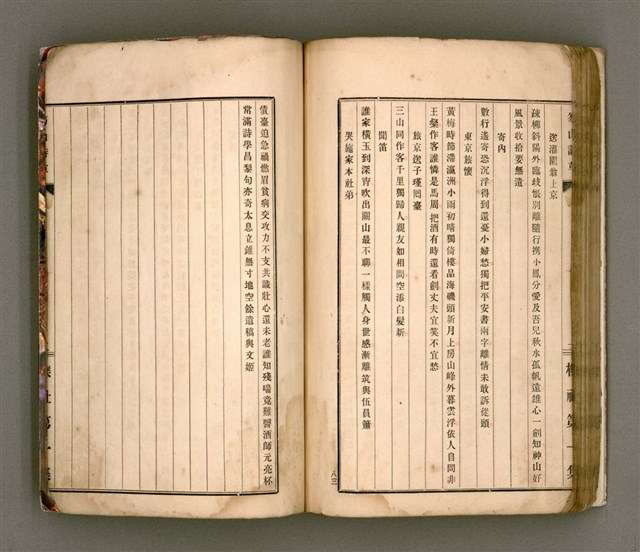 送灌園翁上京
疎柳斜陽外臨歧悵別離隨行携小鳳分愛及吾兒秋水孤帆遠雄心一劍知神山好
風景收拾要無遺
寄內
數行遙寄恐沉浮得到還憂小婦愁獨把平安書兩字離情未敢訴從頭
東京旅懷
黃梅時節滯瀛洲小雨初晴獨倚樓品海磯頭新月上房山峰外暮雲浮依人自問非
王粲作客誰憐是馬周把酒有時還看劍丈夫宜笑不宜愁
旅京送子瑾囘臺
三山同作客千里獨歸人親友如相問空添白髮新
聞笛
誰家橫玉到深宵吹出關山最不聊一樣觸人身世感漸離筑與伍員簫
哭施家本社弟
八三
債臺迫急禍燃眉貧病交攻力不支共識壯心還未老誰知殘喘竟難醫酒師元亮杯
常滿詩學昌黎句亦奇太息立錐無寸地空餘遺稿與文姬
櫟社第一集